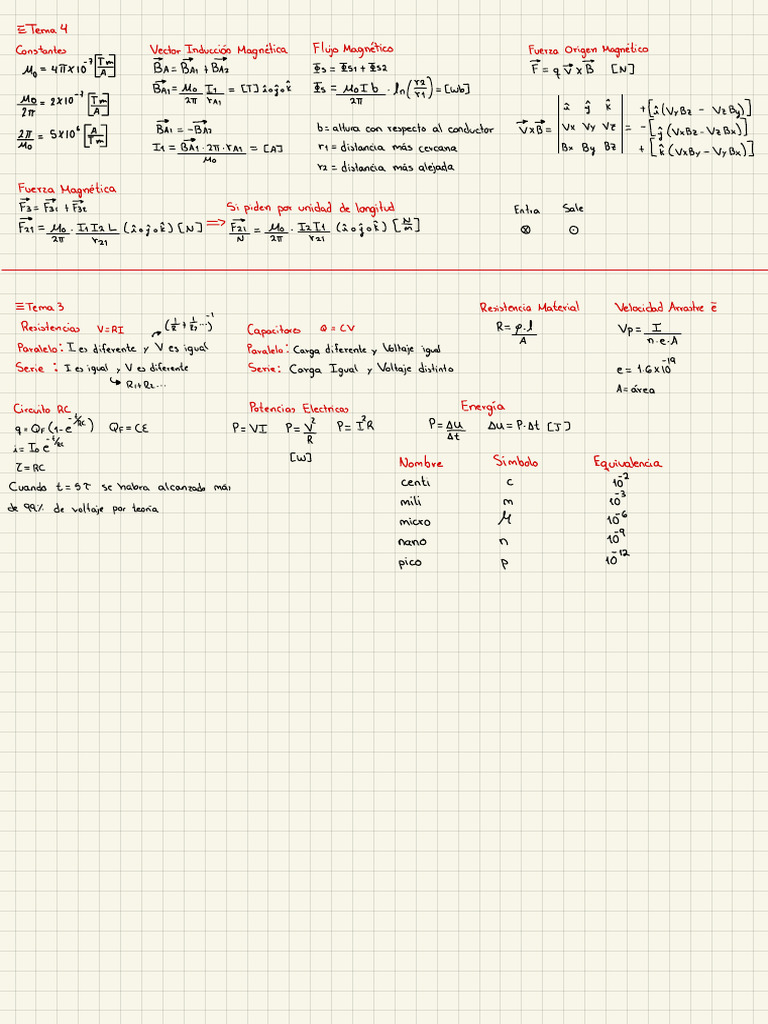 Ξ Tema 4
Constantes
μ₀ = 4π×10⁻⁷ [Tm/A]
μ₀/2π = 2×10⁻⁷ [Tm/A]
2π/μ₀ = 5×10⁶ [A/Tm]
Vector Inducción Magnética
B⃗A = B⃗A1 + B⃗A2
B⃗A1 = μ₀/2π I1/rA1 = [T] î o ĵ o k̂
B⃗A1 = -B⃗A2
I1 = B⃗A1 · 2π · rA1/μ₀ = [A]
Flujo Magnético
Φs = Φs1 + Φs2
Φs = μ₀ I b/2π · ln(r2/r1) = [Wb]
b = altura con respecto al conductor
r1 = distancia más cercana
r2 = distancia más alejada
Fuerza Origen Magnético
F⃗ = q V⃗ × B⃗ [N]
V⃗×B⃗ = | î ĵ k̂ | + [î (VyBz - VzBy)]
| Vx Vy Vz | = - [ĵ (VxBz - VzBx)]
| Bx By Bz | + [k̂ (VxBy - VyBx)]
Fuerza Magnética
F⃗3 = F⃗31 + F⃗32
F⃗21 = μ₀/2π · I1 I2 L/r21 (î o ĵ o k̂) [N]
Si piden por unidad de longitud
⇒ F⃗21/N = μ₀/2π · I2 I1/r21 (î o ĵ o k̂) [N/m]
Entra Sale
⊗ ⊙
Ξ Tema 3
Resistencias V=RI (1/R + 1/R2 ...)⁻¹
Paralelo: I es diferente y V es igual
Serie : I es igual y V es diferente
↳ R1+R2...
Capacitores Q = CV
Paralelo: Carga diferente y Voltaje igual
Serie: Carga Igual y Voltaje distinto
Resistencia Material
R = ρ.l/A
Velocidad Arrastre ē
Vp = I/n.e.A
e = 1.6×10⁻¹⁹
A = área
Circuito RC
q = QF (1-e^-t/RC) QF = Cε
i = I₀ e^-t/RC
τ = RC
Cuando t = 5τ se habra alcanzado más
de 99% de voltaje por teoría
Potencias Electricas
P = VI P = V²/R P = I²R
[W]
Energía
P = Δu/Δt Δu = P.Δt [J]
Nombre Simbolo Equivalencia
centi c 10⁻²
mili m 10⁻³
micro μ 10⁻⁶
nano n 10⁻⁹
pico p 10⁻¹²